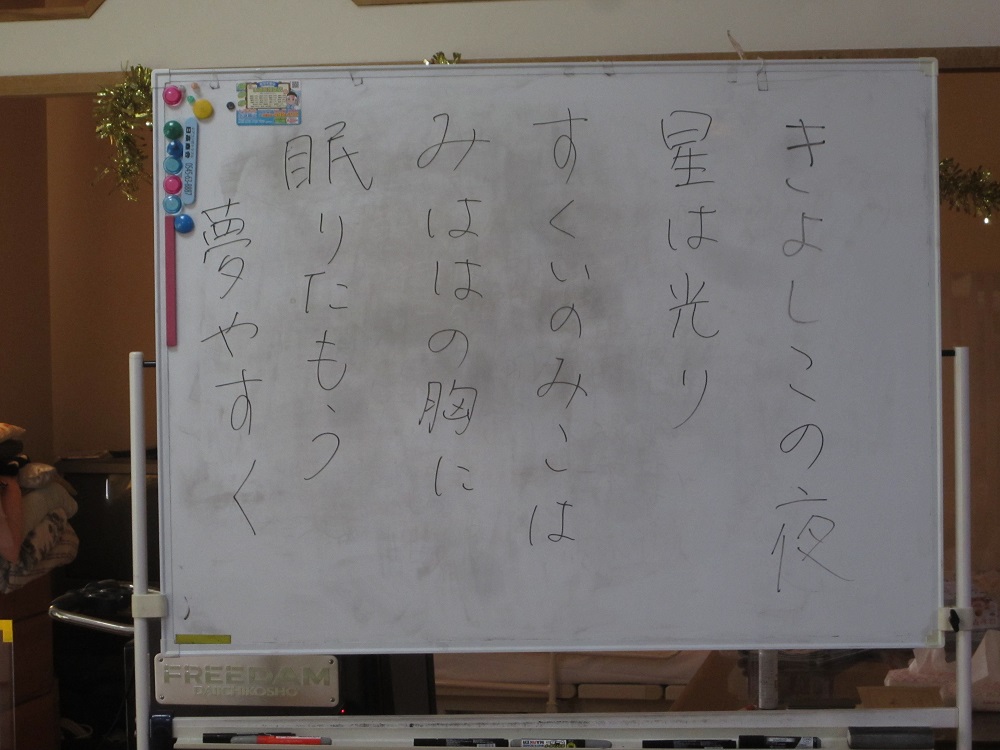 きよしこの夜
星は光り
すくいのみこは
みははの胸に
眠りたもう
夢やすく
FREEDAM
DAIICHIKOSHO